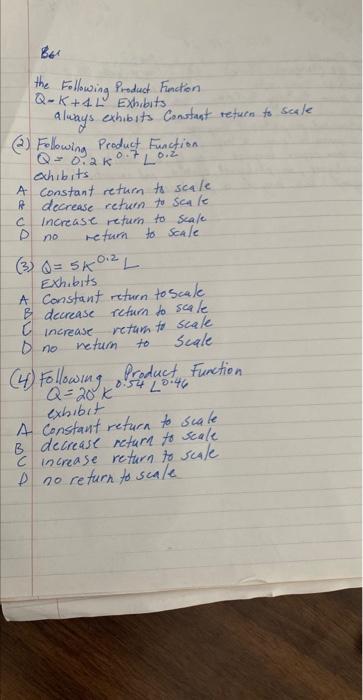 the Following Product Function
Q = K + 4L Exhibits
always exhibits Constant return to scale
(2) Following Product Function
Q = 0.2 K^0.7 L^0.2
exhibits
A constant return to scale
B decrease return to scale
C Increase return to scale
D no return to scale
(3) Q = 5K^0.2 L
Exhibits
A Constant return to scale
B decrease return to scale
C increase return to scale
D no return to Scale
(4) Following Product Function
Q = 20 K^0.54 L^0.46
exhibit
A Constant return to scale
B decrease return to scale
C increase return to scale
D no return to scale